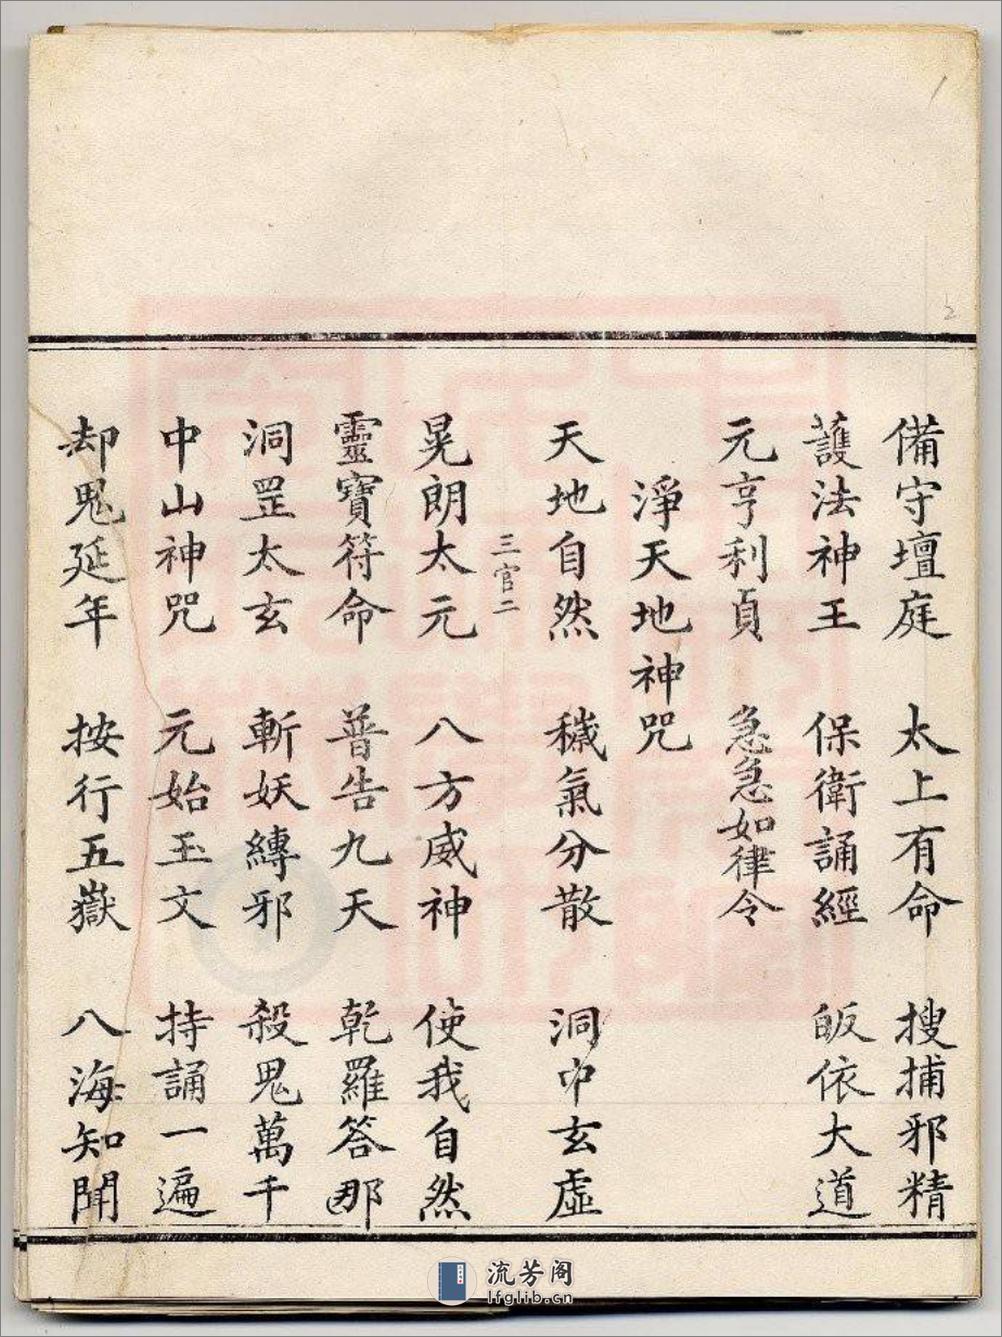 備守壇庭 太上有命 搜捕邪精
護法神王 保衛誦經 皈依大道
元亨利貞 急急如律令
淨天地神咒
天地自然 穢氣分散 洞中玄虛
三官二
晃朗太元 八方威神 使我自然
靈寶符命 普告九天 乾羅答那
洞罡太玄 斬妖縛邪 殺鬼萬千
中山神咒 元始玉文 持誦一遍
却鬼延年 按行五嶽 八海知聞
2
流芳阁
lfglib.cn